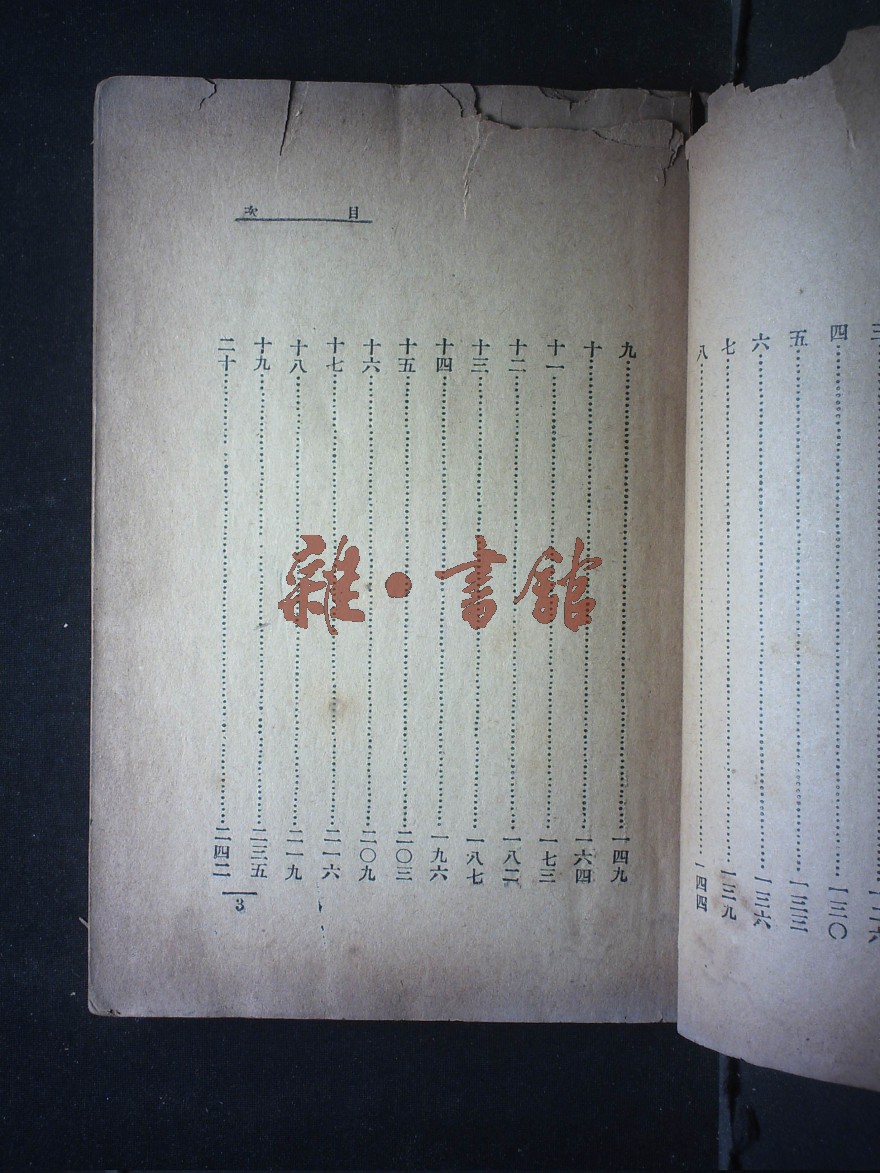 四……一三〇
五……一三三
六……一三六
七……一三九
八……一四四
目次
九……一四九
十……一六四
十一……一七三
十二……一八二
十三……一八七
十四……一九六
十五……二〇三
十六……二〇九
十七……二一六
十八……二一九
十九……二三五
二十……二四二
3
雜·書館